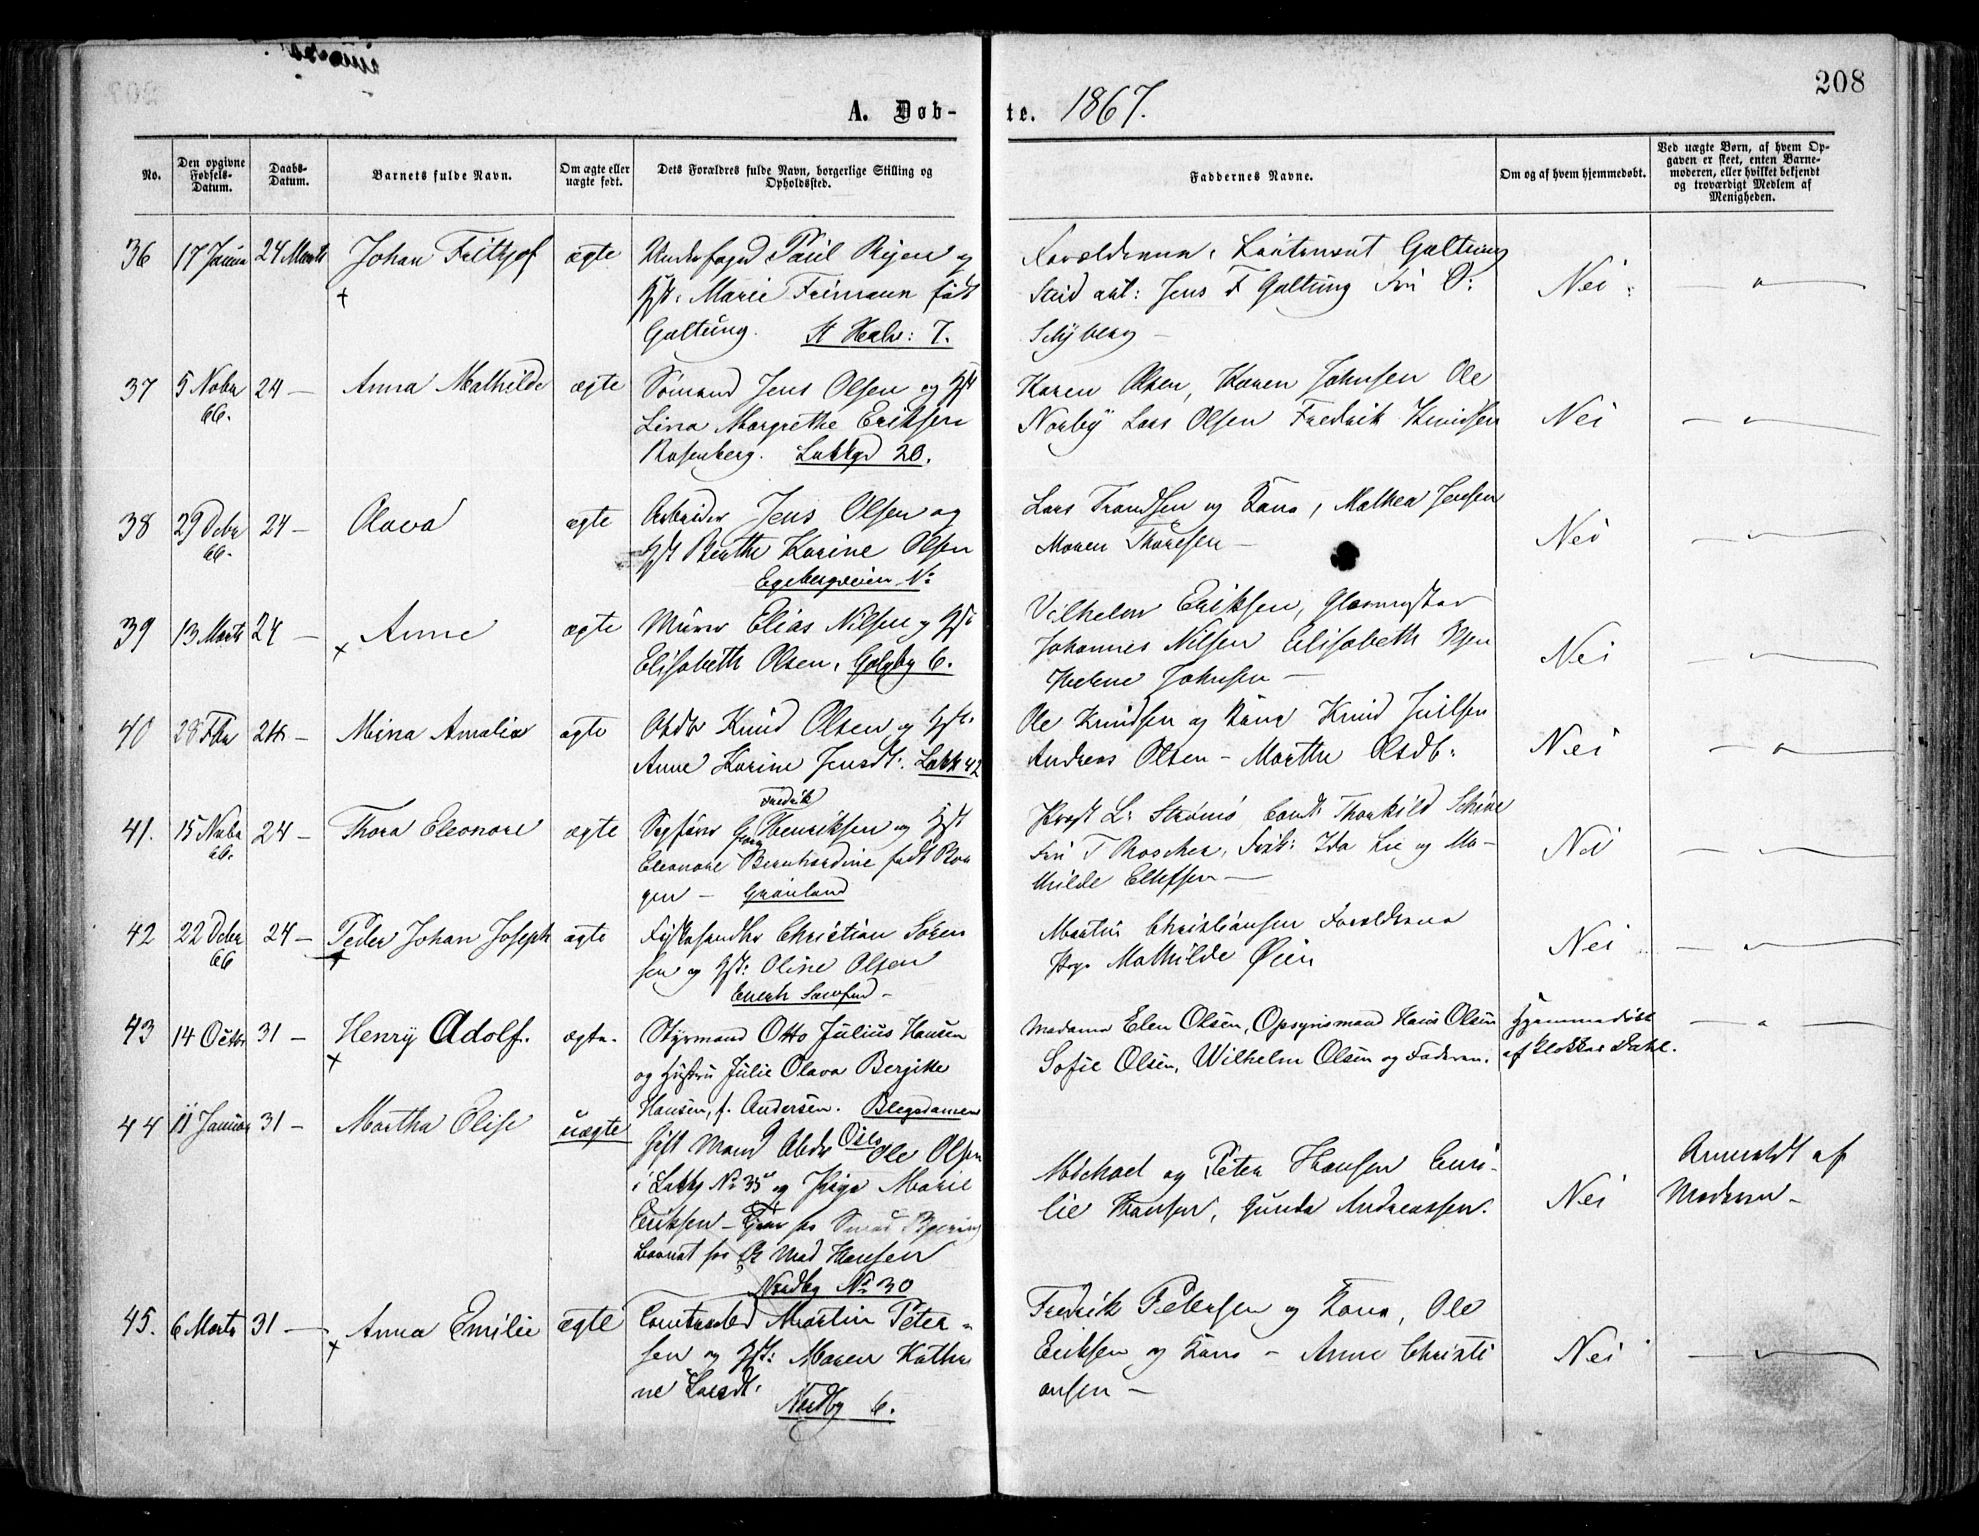 208
A. Døb-te. 1867.
No.
Den opgivne Fødsels-Datum.
Daabs-Datum.
Barnets fulde Navn.
Om ægte eller uægte født.
Dets Forældres fulde Navn, borgerlige Stilling og Opholdssted.
Faddernes Navne.
Om og af hvem hjemmedøbt.
Ved uægte Børn, af hvem Opgaven er skeet, enten Barnemoderen, eller hvilket bekjendt og troværdigt Medlem af Menigheden.
36 17 Januar 24 Marts Johan Frithjof ægte
Paul
Hst: Marie Frimann født
Galtung. St Halv: 7.
Forældrene, Lieutenant Galtung
Stud art: Jens F Galtung Frk
Schjberg —
Nei
37 5 Nobr 66. 24 — Anna Mathilde ægte
Sømand Jens Olsen og Hst
Lina Margrethe Eriksen
Rosenberg. Lakkgd 20.
Karen Olsen, Karen Johnsen Ole
Norby Lars Olsen Fredrik Knudsen
Nei
38 29 Debr 66. 24 — Olava ægte
Arbeider Jens Olsen og
Hst Berthe Karine Olsen
Egebergveien No
Lars Trondsen og Kone, Mathea Jensen
Maren Thoresen —
Nei
39 13 Marts 24 — Anne ægte
Murer Elias Nilsen og Hst:
Elisabeth Olsen, Galgby 6.
Vilhelm Eriksen, Glasmester
Johannes Nilsen Elisabeth
Helene Johnsen —
Nei
40 28 Fbr 24 — Mina Amalia ægte
Arbdr Knud Olsen og Hst:
Anne Karine Jensdt: Lakk 42
Ole Knudsen og Kone Knud
Andreas Olsen — Marthe Olsdtr:
Nei
41. 15 Nobr 66. 24 — Thora Eleonore ægte
Fredrik
Sagfører Georg Henriksen og Hst
Eleonore Bernhardine født
gen — Grønland
L: Strøm, Cand: Thorkild
T Roscher, Frk: Ida Lie og Ma-
thilde Ellefsen —
Nei
42 22 Debr 66 24 — Peder Johan Joseph ægte
Fiskehandler Christian Søren
sen og Hst: Oline Olsen
Enerh
Martin Christiansen Forældrene
Pige Mathilde Øien
Nei
43 14 Octbr 31 — Henrÿ Adolf. ægte.
Styrmand Otto Julius Hansen
og Hustru Julie Olava Bergitte
Hansen, f. Andersen. Blegdammen
Madame Elen Olsen, Opsynsmand Hans Olsen
Sofie Olsen, Wilhelm Olsen og Faderen.
Hjemmedøbt
af Klokker Dahl.
44 11 Januar 31 — Martha Elise uægte
Gift Mand Arbdr Ole Olsen
i Lakkg No 35 og Pige Marie
Eriksen —
Mad Hansen
Nordby No 30
Michael og Peter Hansen Emi-
lie Hansen, Gunda Andreassen.
Nei
Anmeldt af
Moderen —
45. 6 Marts 31 — Anna Emilie ægte
Martin Peter-
sen og Hst: Maren Kathri
ne Larsdt:
Nordby 6.
Fredrik Petersen og Kone, Ole
Eriksen og Kone — Anne Christi
ansen —
Nei